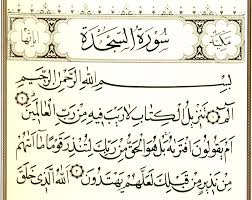 مكية سورة السجدة
بِسْمِ اللَّهِ الرَّحْمَٰنِ الرَّحِيمِ
الٓمٓ تَنزِيلُ الْكِتَابِ لَا رَيْبَ فِيهِ مِن رَّبِّ الْعَالَمِينَ
أَمْ يَقُولُونَ افْتَرَاهُ بَلْ هُوَ الْحَقُّ مِن رَّبِّكَ لِتُنذِرَ قَوْمًا مَّا أَتَاهُم
مِّن نَّذِيرٍ مِّن قَبْلِكَ لَعَلَّهُمْ يَهْتَدُونَ اللَّهُ الَّذِي خَلَقَ